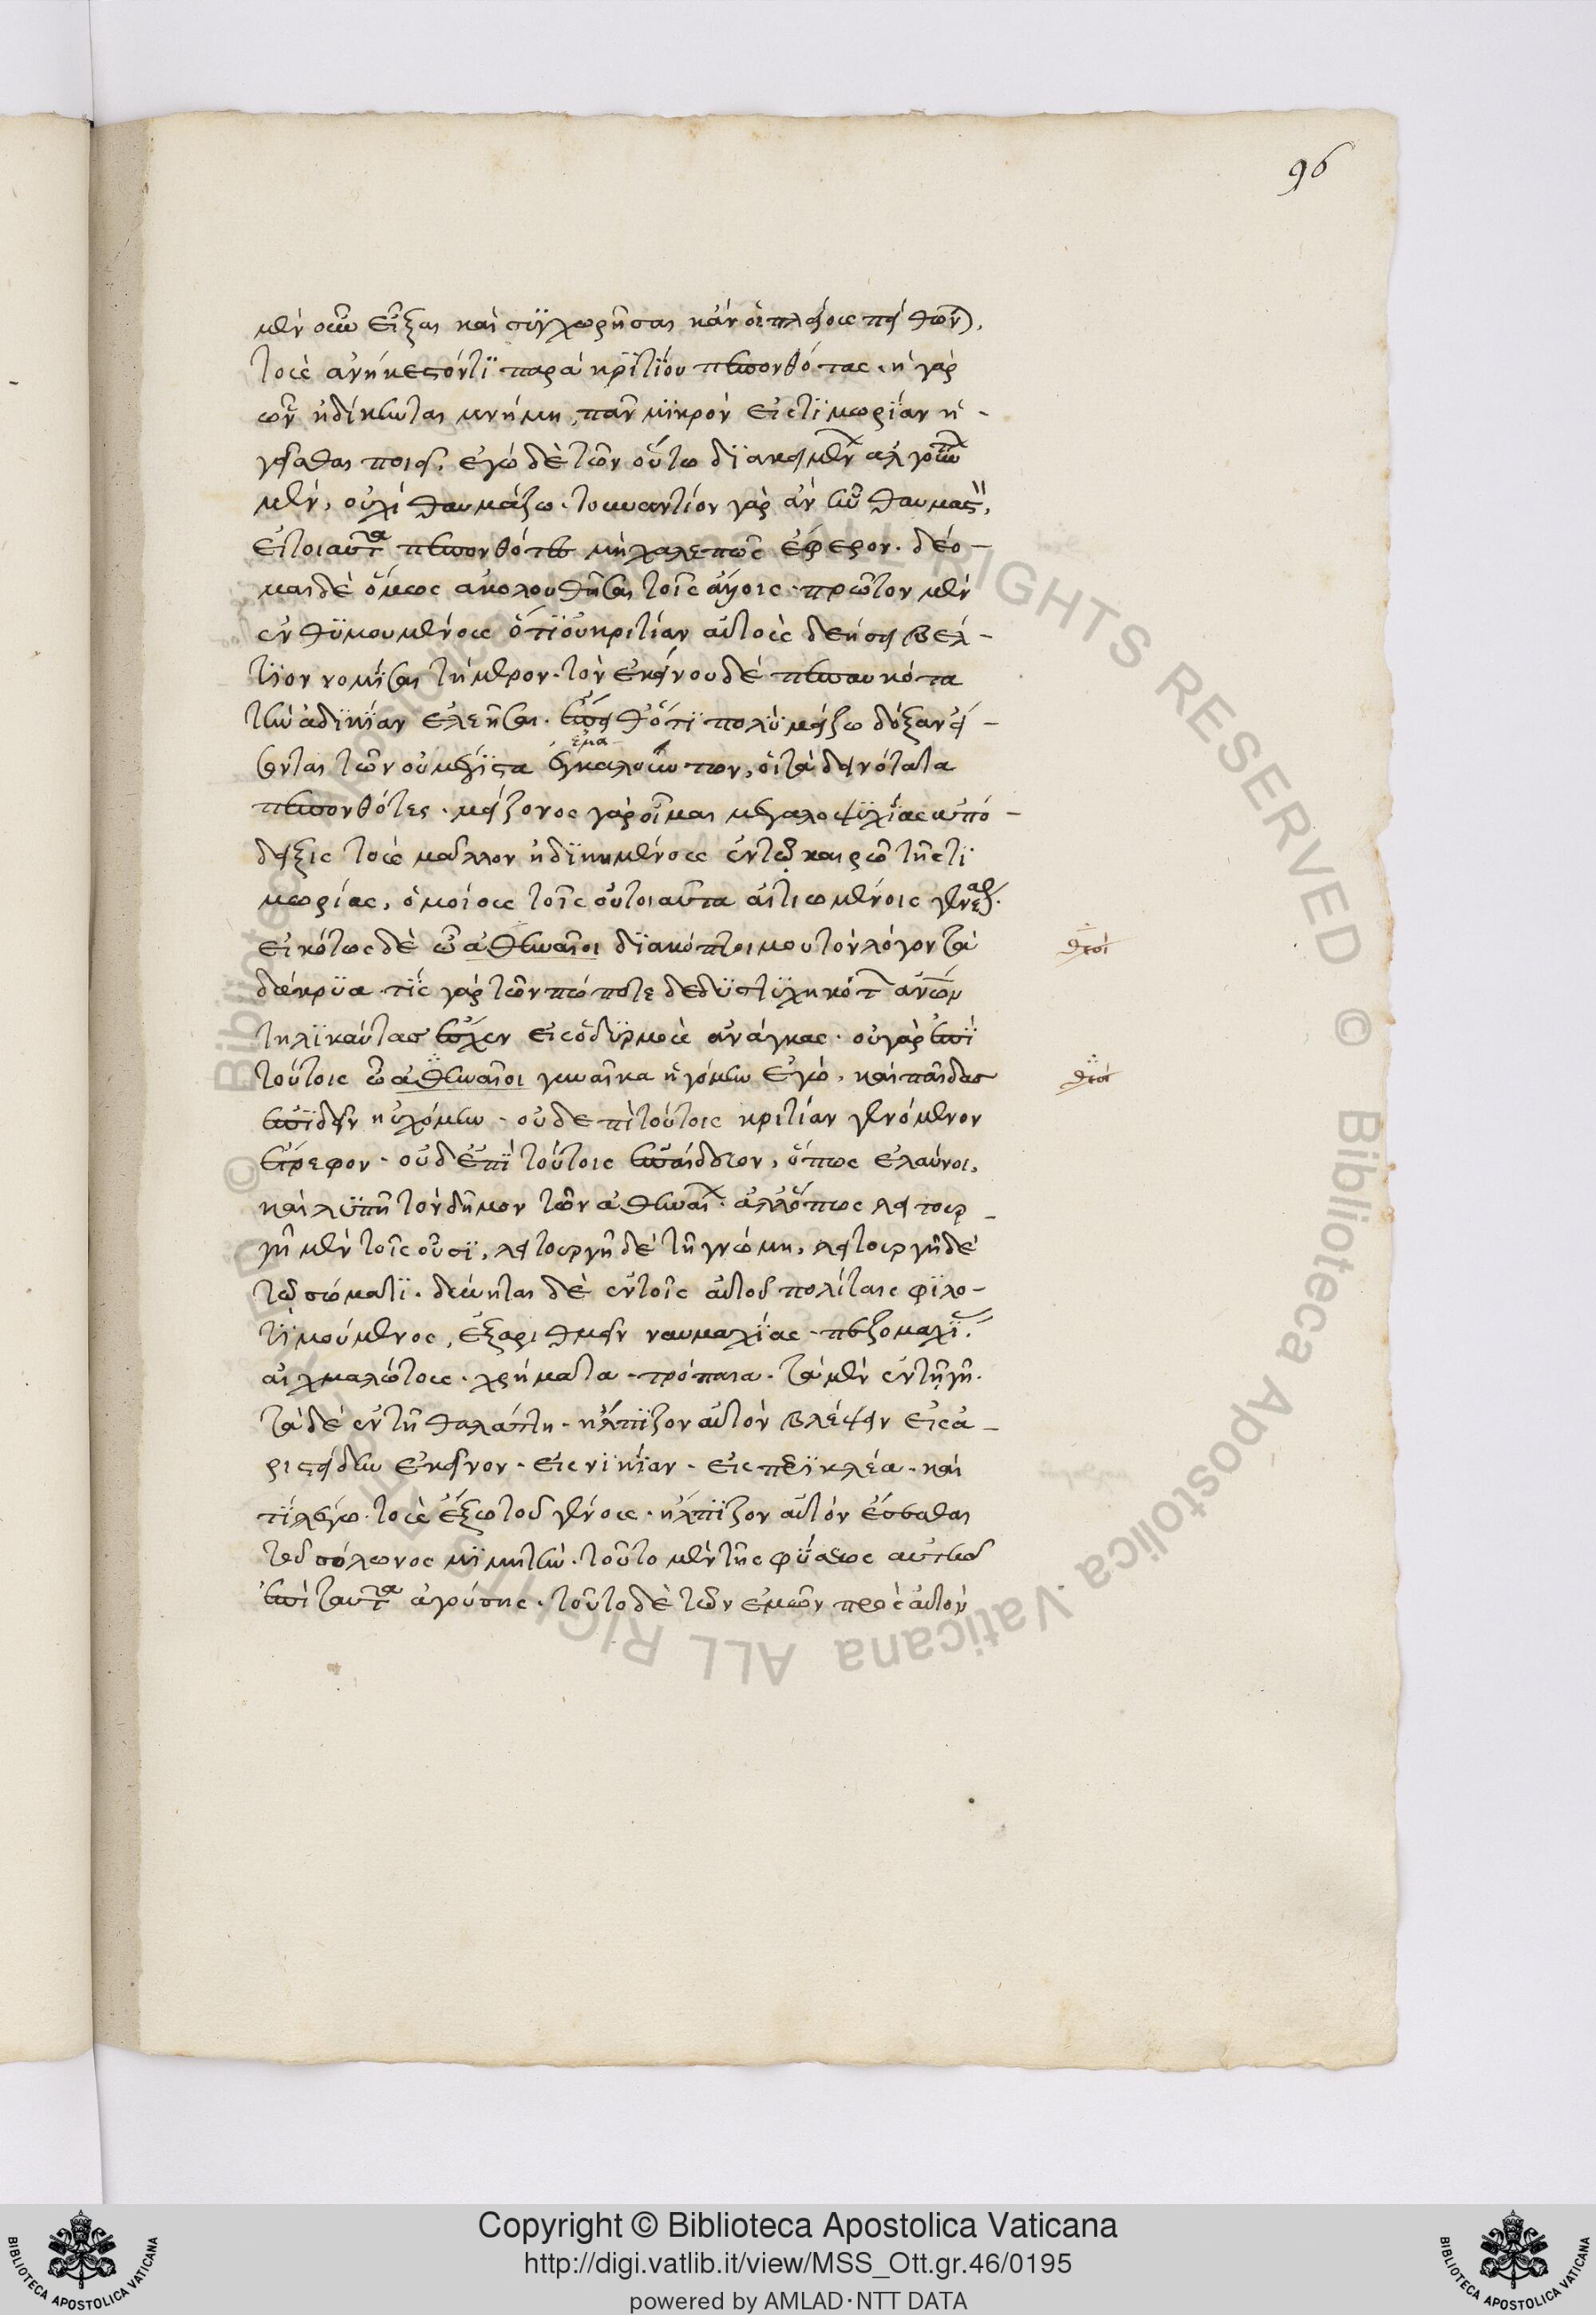 96
μὲν οὖν εἶξαι καὶ συγχωρῆσαι κἀν οἱ πλείους πεισθῶσιν,
τοὺς ἀνήκεστόν τι παρὰ κριτίου πεπονθότας. ἡ γὰρ
ὧν ἠδίκηνται μνήμη, πᾶν μικρὸν εἰς τιμωρίαν ἡ-
γεῖσθαι ποιεῖ. ἐγὼ δὲ τῶν οὕτω διακειμένων
μὲν, οὐχὶ θαυμάζω. τοὐναντίον γὰρ ἂν ἦν θαυμαστὸν,
εἰ τοιαῦτα πεπονθότες μὴ χαλεπῶς ἔφερον. δέο-
μαι δὲ ὅμως ἀκολουθῆσαι τοῖς ἄλλοις. πρῶτον μὲν
ἐνθυμουμένους ὅτι οὐ κριτίαν αὐτοὺς δεήσει βέλ-
τιον νομίσαι τήμερον. τὸν ἐκείνου δὲ πεπαυκότα
τὴν ἀδικίαν ἐλεῆσαι. ἔπειθ' ὅτι πολὺ μείζω δόξαν οἴ-
σονται τῶν οὐ μέγιστα ἐγκαλούντων, οἱ τὰ δεινότατα
εμα
πεπονθότες. μείζονος γὰρ οἶμαι μεγαλοψυχίας ἀπό-
δειξις τοὺς μᾶλλον ἠδικημένους ἐν τῷ καιρῷ τῆς τι
μωρίας, ὁμοίους τοῖς οὐ τοιαῦτα αἰτιωμένοις γενέσθαι.
εἰκότως δὲ ὦ ἀθηναῖοι διακόπτει μου τὸν λόγον τὰ
δάκρυα. τίς γὰρ τῶν πώποτε δεδυστυχηκότων ἀνθρώπων
τηλικαύτας ἔσχεν εἰς ὀδυρμοὺς ἀνάγκας. οὐ γὰρ ἐπὶ
τούτοις ὦ ἀθηναῖοι γυναῖκα ἠγόμην ἐγὼ, καὶ παῖδας
ἐπιδεῖν ηὐχόμην. οὐδ' ἐπὶ τούτοις κριτίαν γενόμενον
ἔτρεφον. οὐδ' ἐπὶ τούτοις ἐπαίδευον, ὅπως ἐλαύνοι,
καὶ λυπῇ τὸν δῆμον τῶν ἀθηναίων. ἀλλ' ὅπως λειτουρ-
γῇ μὲν τοῖς οὖσι, λειτουργῇ δὲ τῇ γνώμῃ, λειτουργῇ δὲ
τῷ σώματι. δύνηται δὲ ἐν τοῖς αὐτοῦ πολίταις φιλο-
τιμούμενος, ἐξαριθμεῖν ναυμαχίας. πεζομαχίας.
αἰχμαλώτους. χρήματα. τρόπαια. τὰ μὲν ἐν τῇ γῇ.
τὰ δὲ ἐν τῇ θαλάττῃ. ἤλπιζον αὐτὸν βλέψειν εἰς ἀ-
ριστείδην ἐκεῖνον. εἰς νικίαν. εἰς περικλέα. καὶ
τί λέγω τοὺς ἔξω τοῦ γένους. ἤλπιζον αὐτὸν ἔσεσθαι
τοῦ σόλωνος μιμητὴν. τοῦτο μὲν τῆς φύσεως αὐτὸν
ἐπὶ ταῦτα ἀγούσης. τοῦτο δὲ τῶν ἐμῶν πρὸς αὐτὸν
Copyright © Biblioteca Apostolica Vaticana
http://digi.vatlib.it/view/MSS_Ott.gr.46/0195
powered by AMLAD·NTT DATA